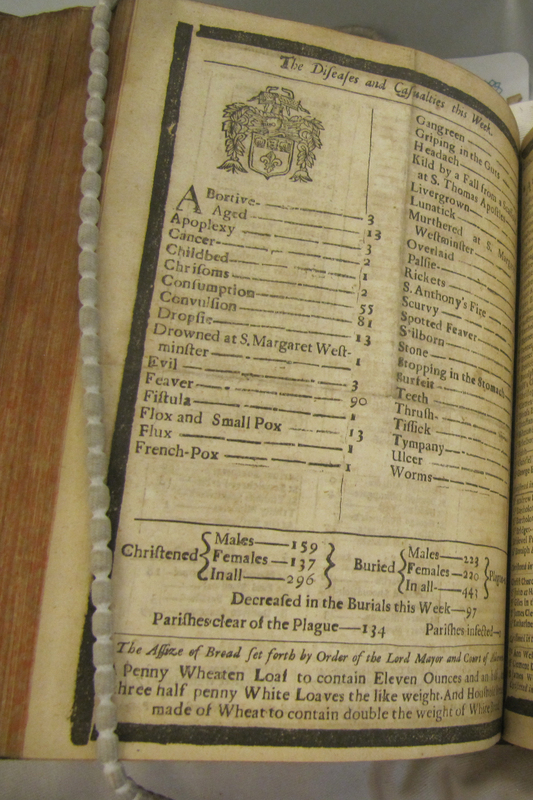 The Diſeaſes and Caſualties this Week.
ABortive— 3
Aged— 13
Apoplexy— 3
Cancer— 2
Childbed— 1
Chriſoms— 2
Conſumption— 55
Convulſion— 81
Dropſie— 13
Drowned at S. Margaret Weſt-
minſter— 1
Evil— 3
Feaver— 90
Fiſtula— 1
Flox and Small Pox— 13
Flux— 1
French-Pox— 1
Gangreen—
Griping in the Guts
Headach—
Kild by a Fall from a
at S. Thomas Apoſtles
Livergrown—
Lunatick—
Murthered at S.
Weſtminſter—
Overlaid
Palſie—
Rickets—
S. Anthony's Fire
Scurvy—
Spotted Feaver—
Stilborn—
Stone—
Stopping in the Stomach
Surfeit—
Teeth—
Thruſh—
Tiſſick—
Tympany—
Ulcer—
Worms—
Chriſtened
Males—159
Females—137
In all—296
Buried
Males—223
Females—220
In all—443
Plague
Decreaſed in the Burials this Week—97
Pariſhes clear of the Plague—134 Pariſhes infected—
The Aſſize of Bread ſet forth by Order of the Lord Mayor and Court of
Penny Wheaten Loaf to contain Eleven Ounces and an
three half penny White Loaves the like weight. And
made of Wheat to contain double the weight of White